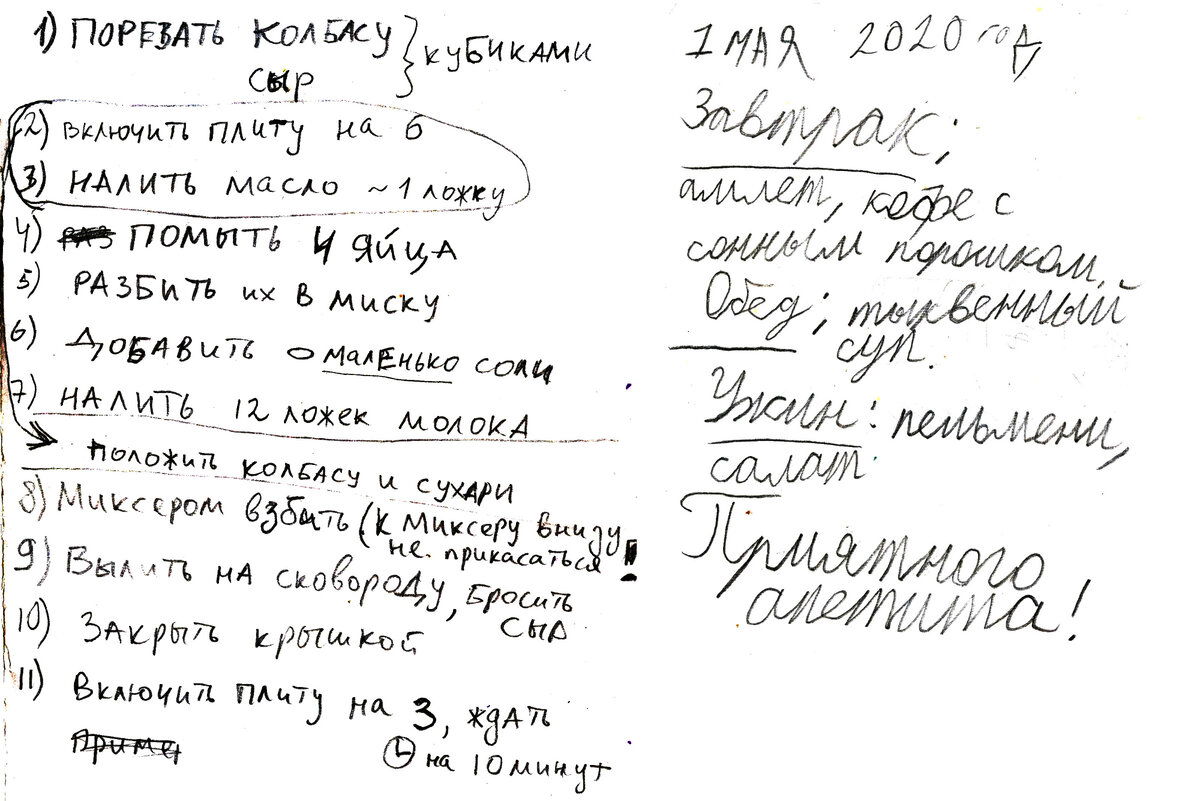 1) ПОРЕЗАТЬ КОЛБАСУ } КУБИКАМИ
СЫР
2) ВКЛЮЧИТЬ ПЛИТУ НА 6
3) НАЛИТЬ МАСЛО ~1 ЛОЖКУ
4) ПОМЫТЬ 4 ЯЙЦА
5) РАЗБИТЬ ИХ В МИСКУ
6) ДОБАВИТЬ МАЛЕНЬКО СОЛИ
7) НАЛИТЬ 12 ЛОЖЕК МОЛОКА
ПОЛОЖИТЬ КОЛБАСУ И СУХАРИ
8) МИКСЕРОМ ВЗБИТЬ (К МИКСЕРУ ВНИЗУ
НЕ ПРИКАСАТЬСЯ!
9) ВЫЛИТЬ НА СКОВОРОДУ, БРОСИТЬ
СЫР
10) ЗАКРЫТЬ КРЫШКОЙ
11) ВКЛЮЧИТЬ ПЛИТУ НА 3, ЖДАТЬ
НА 10 МИНУТ
1 МАЯ 2020 год
Завтрак;
амлет, кофе с
сонным порошком.
Обед; тыквенный
суп.
Ужин: пельмени,
салат
Приятного
апетита!